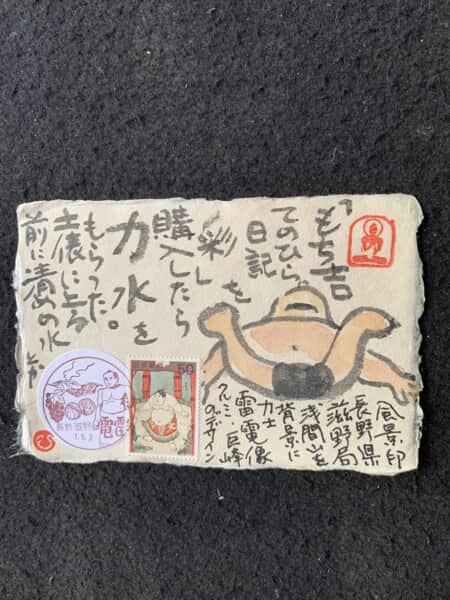 「もち吉
てのひら
日記
彩しを
購入したら
力水を
もらった。
土俵に上る
前に清めの水
風景印
長野県
滋野局
浅間山を
背景に
力士
雷電像
クルミ・巨峰
のデザイン
50
長野滋野
雷電